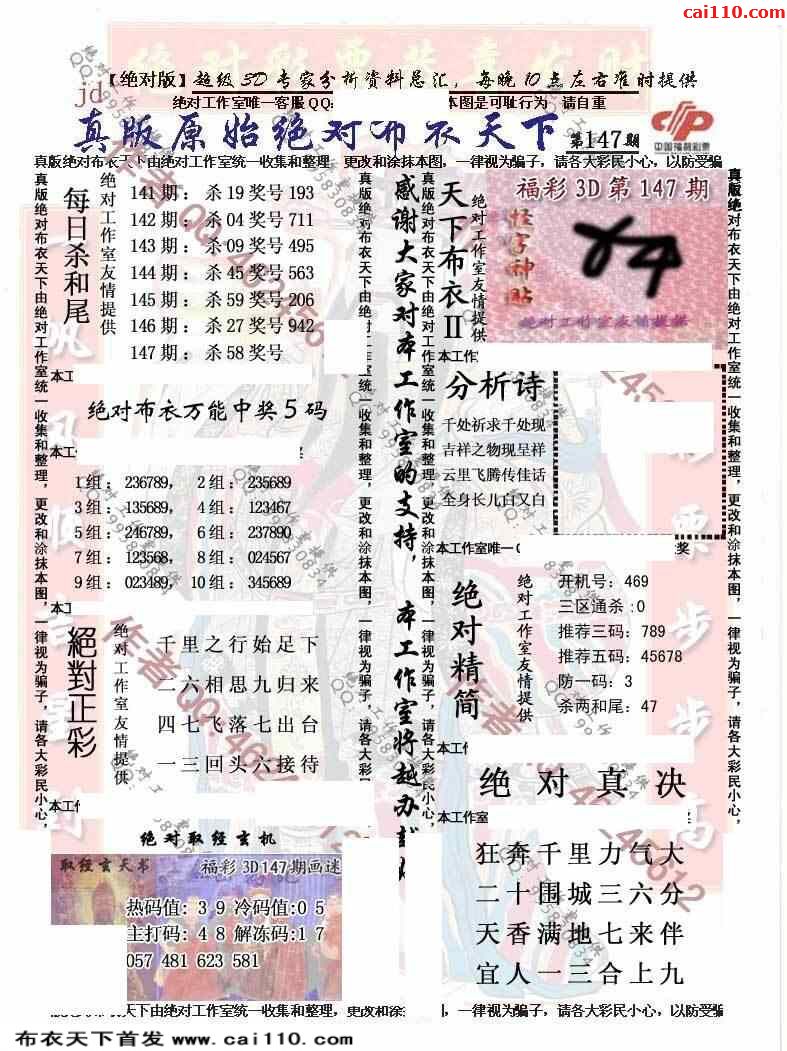 cai110.com
【绝对版】超级3D专家分析资料总汇，每晚10点左右准时提供
jd
绝对工作室唯一客服QQ:
本图是可耻行为 请自重
真版原始绝对布衣天下
第147期
中国福利彩票
真版绝对布衣天下由绝对工作室统一收集和整理，更改和涂抹本图，一律视为骗子，请各大彩民小心，以防受骗
真版绝对布衣天下由绝对工作室统一收集和整理，更改和涂抹本图，一律视为骗子，请各大彩民小心，
每日杀和尾
绝对工作室友情提供
141期：杀19奖号193
142期：杀04奖号711
143期：杀09奖号495
144期：杀45奖号563
145期：杀59奖号206
146期：杀27奖号942
147期：杀58奖号
本工
绝对布衣万能中奖5码
本工
1组：236789， 2组：235689
3组：135689， 4组：123467
5组：246789， 6组：237890
7组：123568， 8组：024567
9组：023489， 10组：345689
本工
絕對正彩
绝对工作室友情提供
千里之行始足下
二六相思九归来
四七飞落七出台
一三回头六接待
本工作
绝对取经玄机
取经玄天书
福彩3D147期画迷
热码值：39冷码值:05
主打码：48解冻码:17
057 481 623 581
感谢大家对本工作室的支持，本工作室将越办越
真版绝对布衣天下由绝对工作室统一收集和整理，更改和涂抹本图，一律视为骗子，请各大彩民小心，
天下布衣II
绝对工作室友情提供
福彩3D第147期
怪字神贴
绝对工作室友情提供
本工作
分析诗
千处祈求千处现
吉祥之物现呈祥
云里飞腾传佳话
全身长儿白又白
本工作室唯一
奖
绝对精简
绝对工作室友情提供
开机号：469
三区通杀:0
推荐三码：789
推荐五码：45678
防一码：3
杀两和尾：47
本工作
绝对真决
本工作室
狂奔千里力气大
二十围城三六分
天香满地七来伴
宜人一三合上九
真版绝对布衣天下由绝对工作室统一收集和整理，更改和涂抹本图，一律视为骗子，请各大彩民小心，
天下由绝对工作室统一收集和整理，更改和涂
，一律视为骗子，请各大彩民小心，以防受骗
布衣天下首发 www.cai110.com